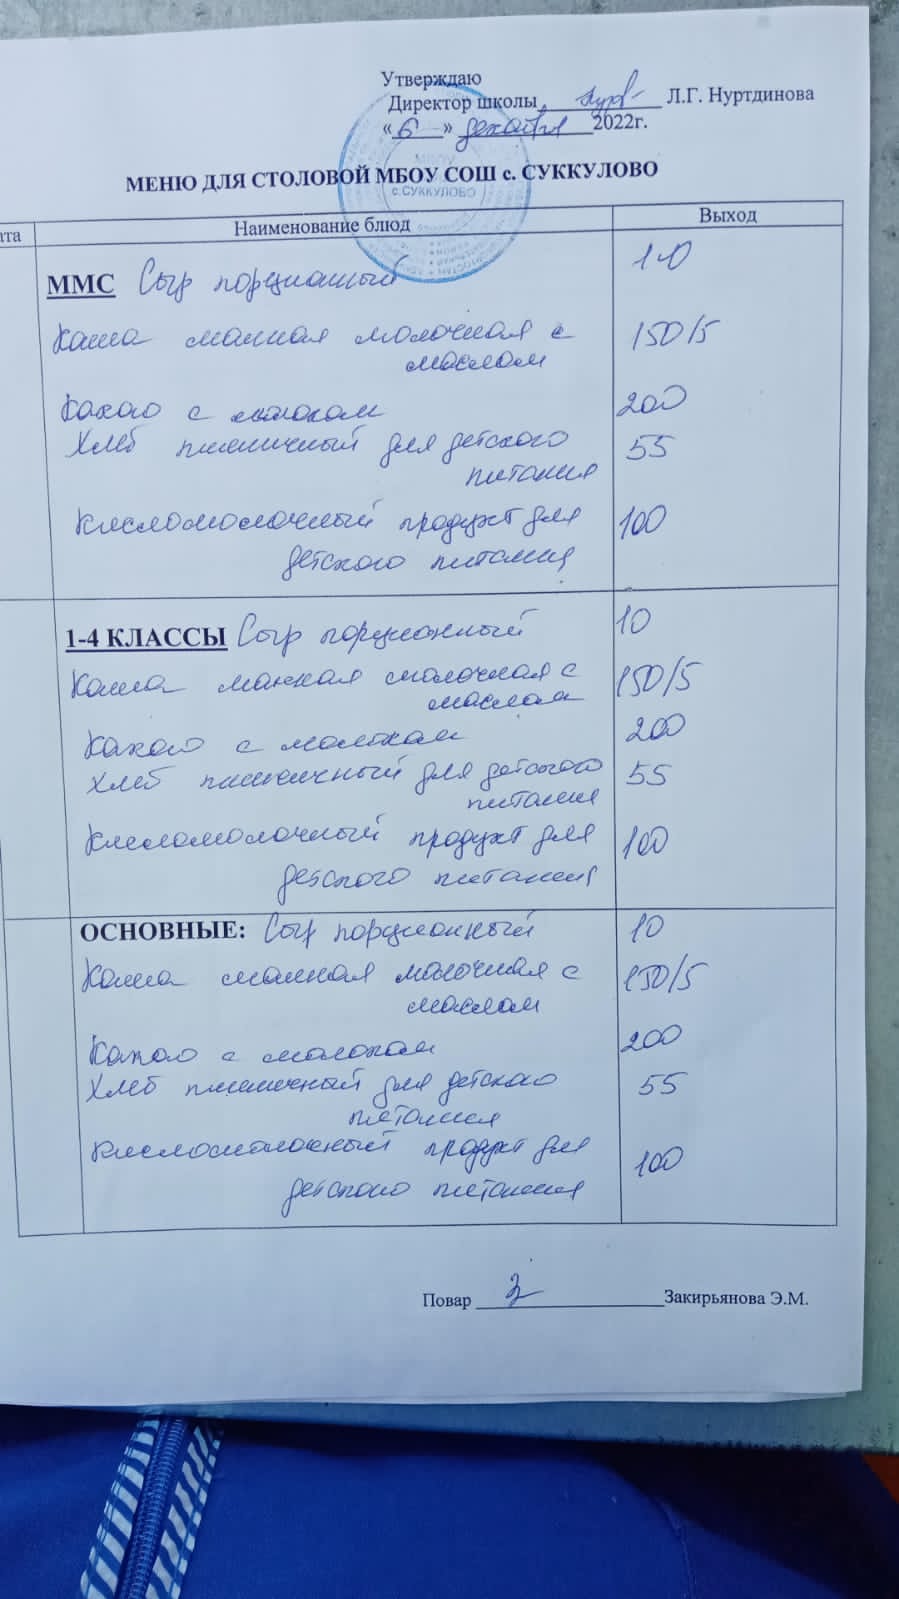 Утверждаю
Директор школы Л.Г. Нуртдинова
«6» декабря 2022г.
МБОУ
с.СУККУЛОВО
МЕНЮ ДЛЯ СТОЛОВОЙ МБОУ СОШ с. СУККУЛОВО
ата Наименование блюд Выход
ММС Сыр порционный 10
Каша манная молочная с 150/5
маслом
Какао с молоком 200
Хлеб пшеничный для детского 55
питания
Кисломолочный продукт для 100
детского питания
1-4 КЛАССЫ Сыр порционный 10
Каша манная молочная с 150/5
маслом
Какао с молоком 200
Хлеб пшеничный для детского 55
питания
Кисломолочный продукт для 100
детского питания
ОСНОВНЫЕ: Сыр порционный 10
Каша манная молочная с 150/5
маслом
Какао с молоком 200
Хлеб пшеничный для детского 55
питания
Кисломолочный продукт для 100
детского питания
Повар Закирьянова Э.М.